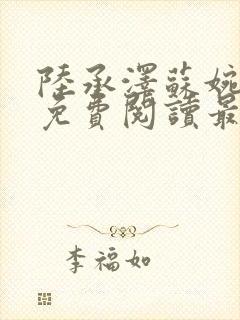 陸承澤蘇婉
免費閱讀最
李福如